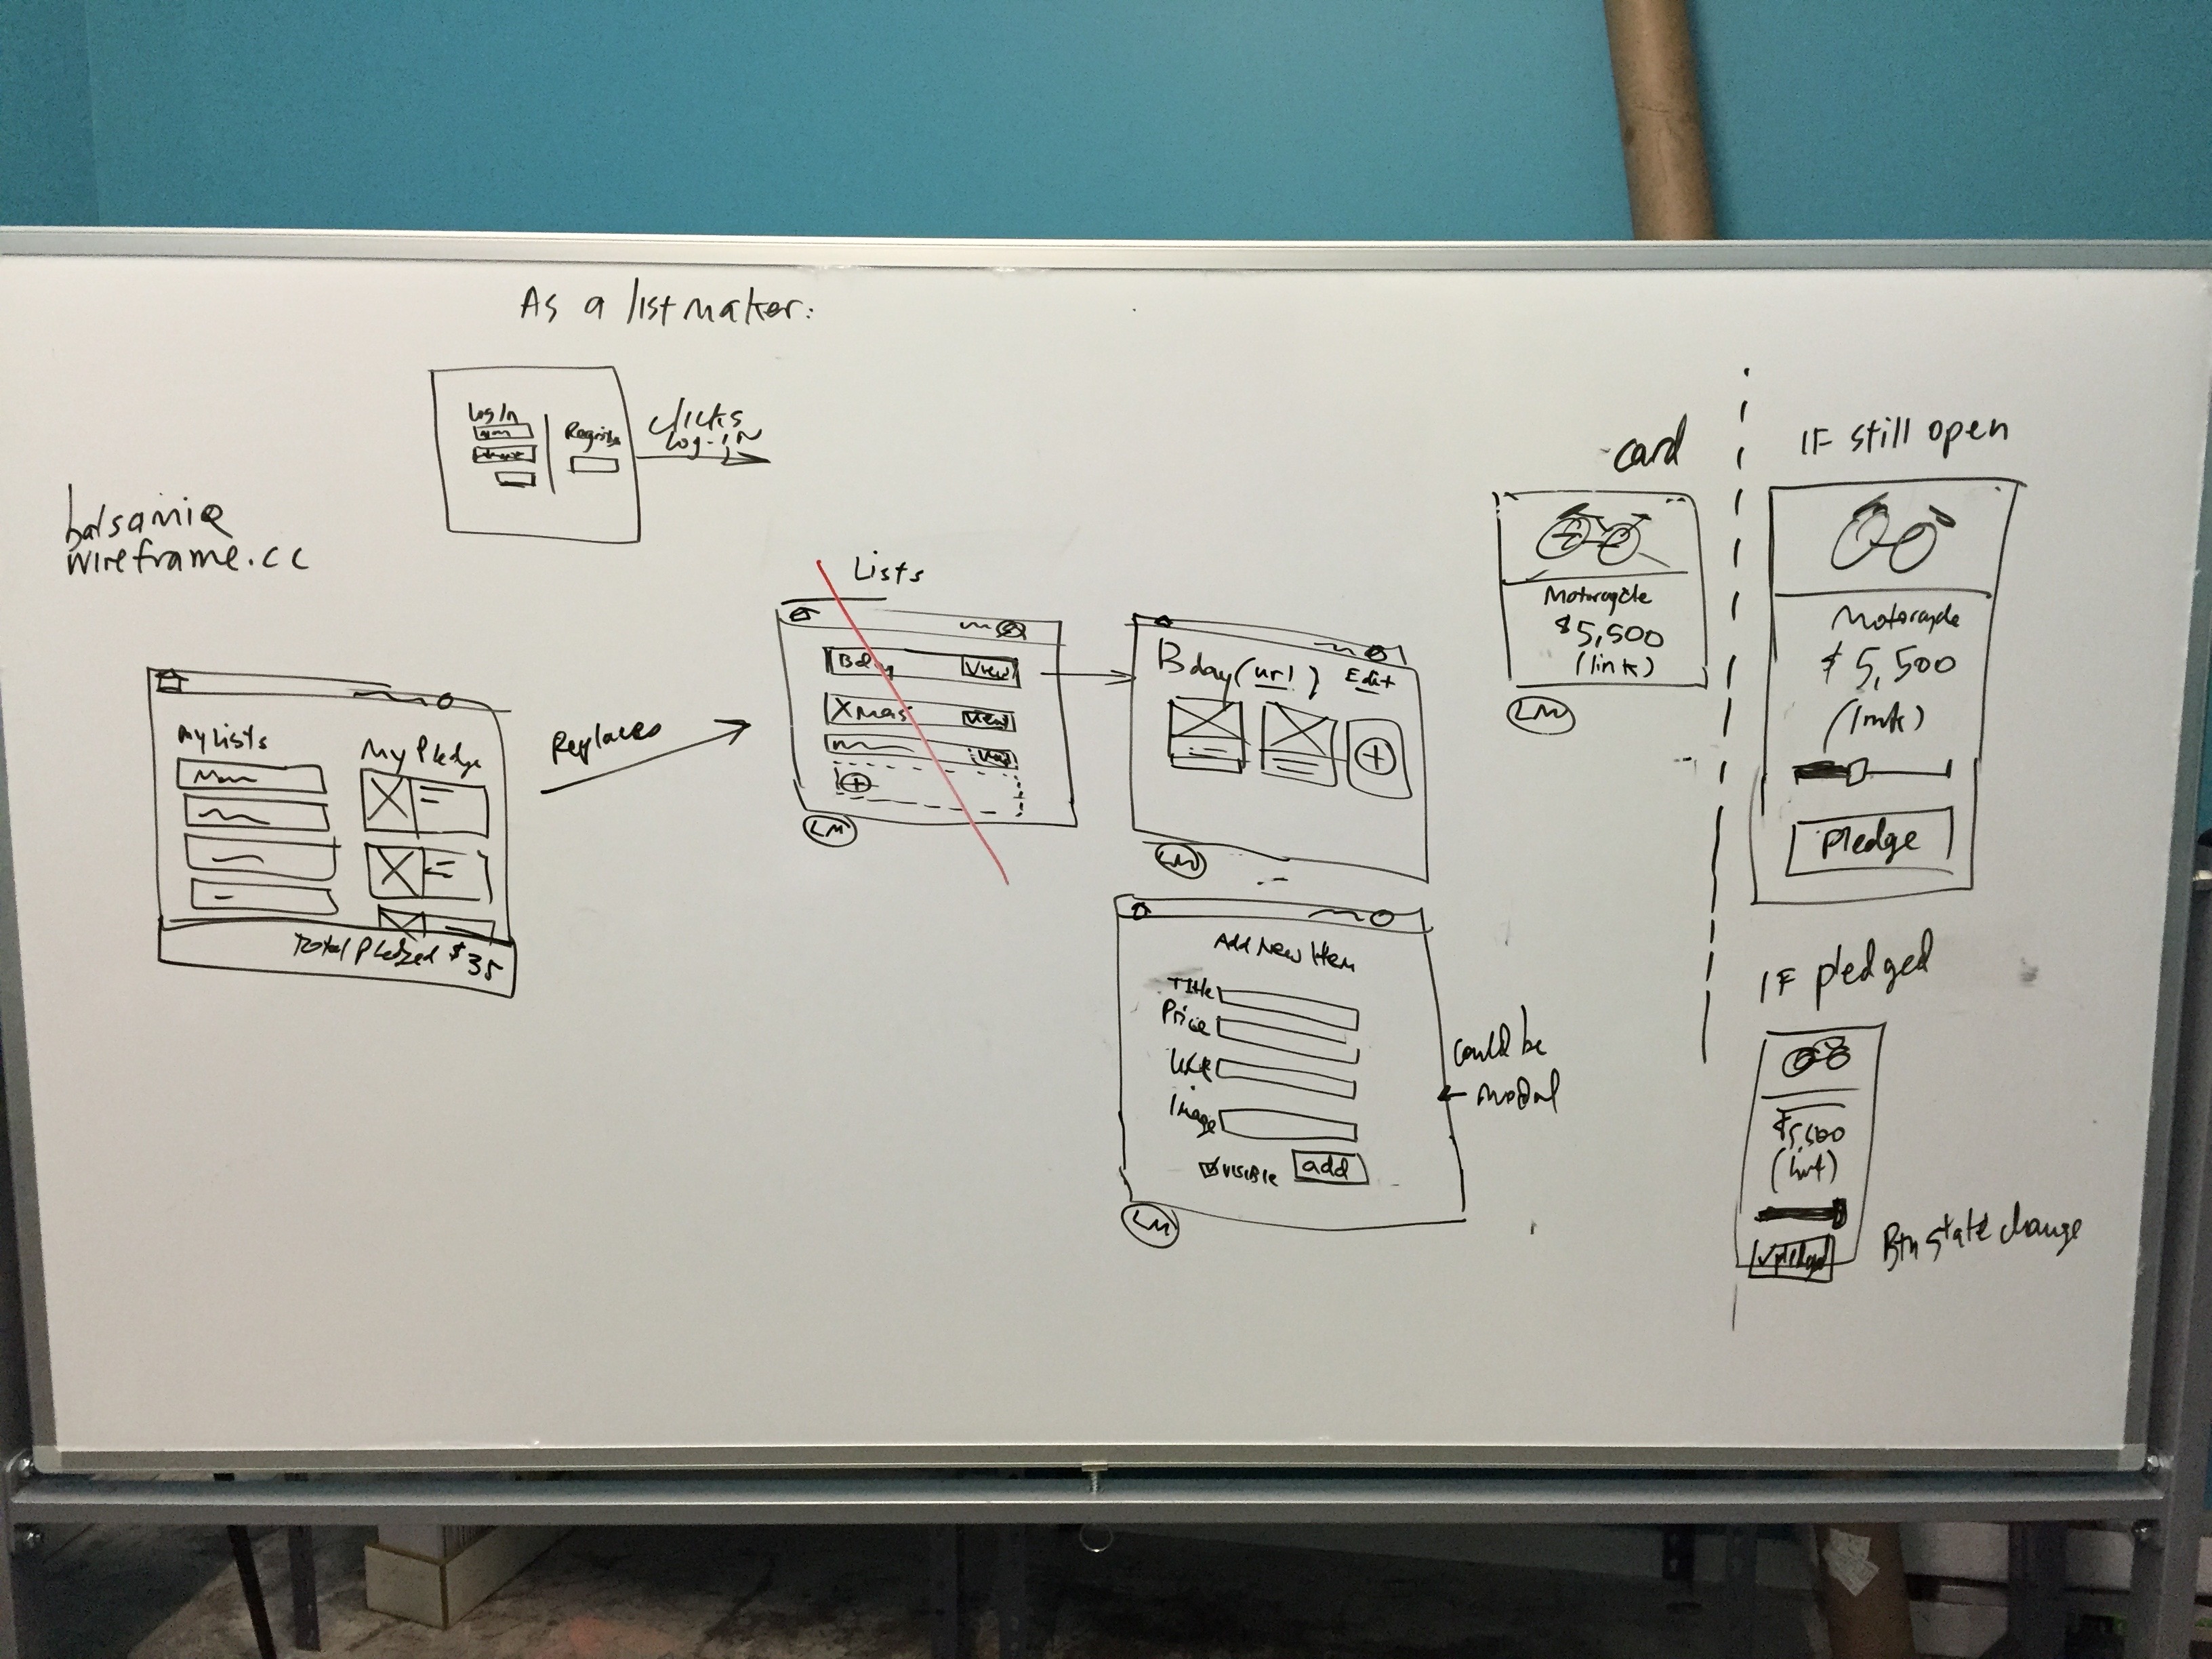 As a listmaker:
Log In
Register
clicks
Log-in
balsamiq
wireframe.cc
My Lists
My Pledge
Total Pledged $35
Replaces
Lists
Bday
View
Xmas
View
View
LM
Bday (url)
Edit
LM
Add New Item
Title
Price
Image
visible
add
LM
could be
modal
card
Motorcycle
$5,500
(link)
LM
IF still open
Motorcycle
$5,500
(link)
Pledge
IF pledged
$5,500
(link)
pledged
Btn state change